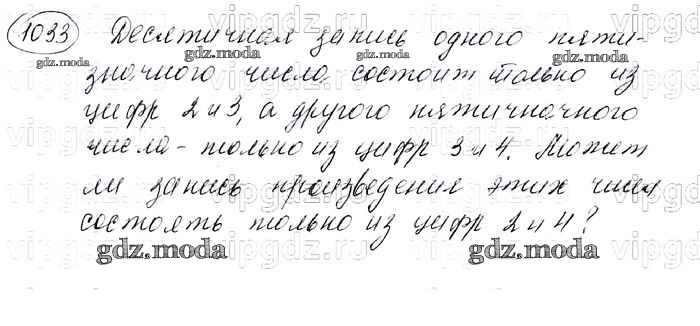 1033 Десятичная запись одного пяти-
значного числа состоит только из
цифр 2 и 3, а другого пятичначного
числа - только из цифр 3 и 4. Может
ли запись произведения этих чисел
состоять только из цифр 2 и 4?
gdz.moda gdz.moda gdz.moda
gdz.moda gdz.moda